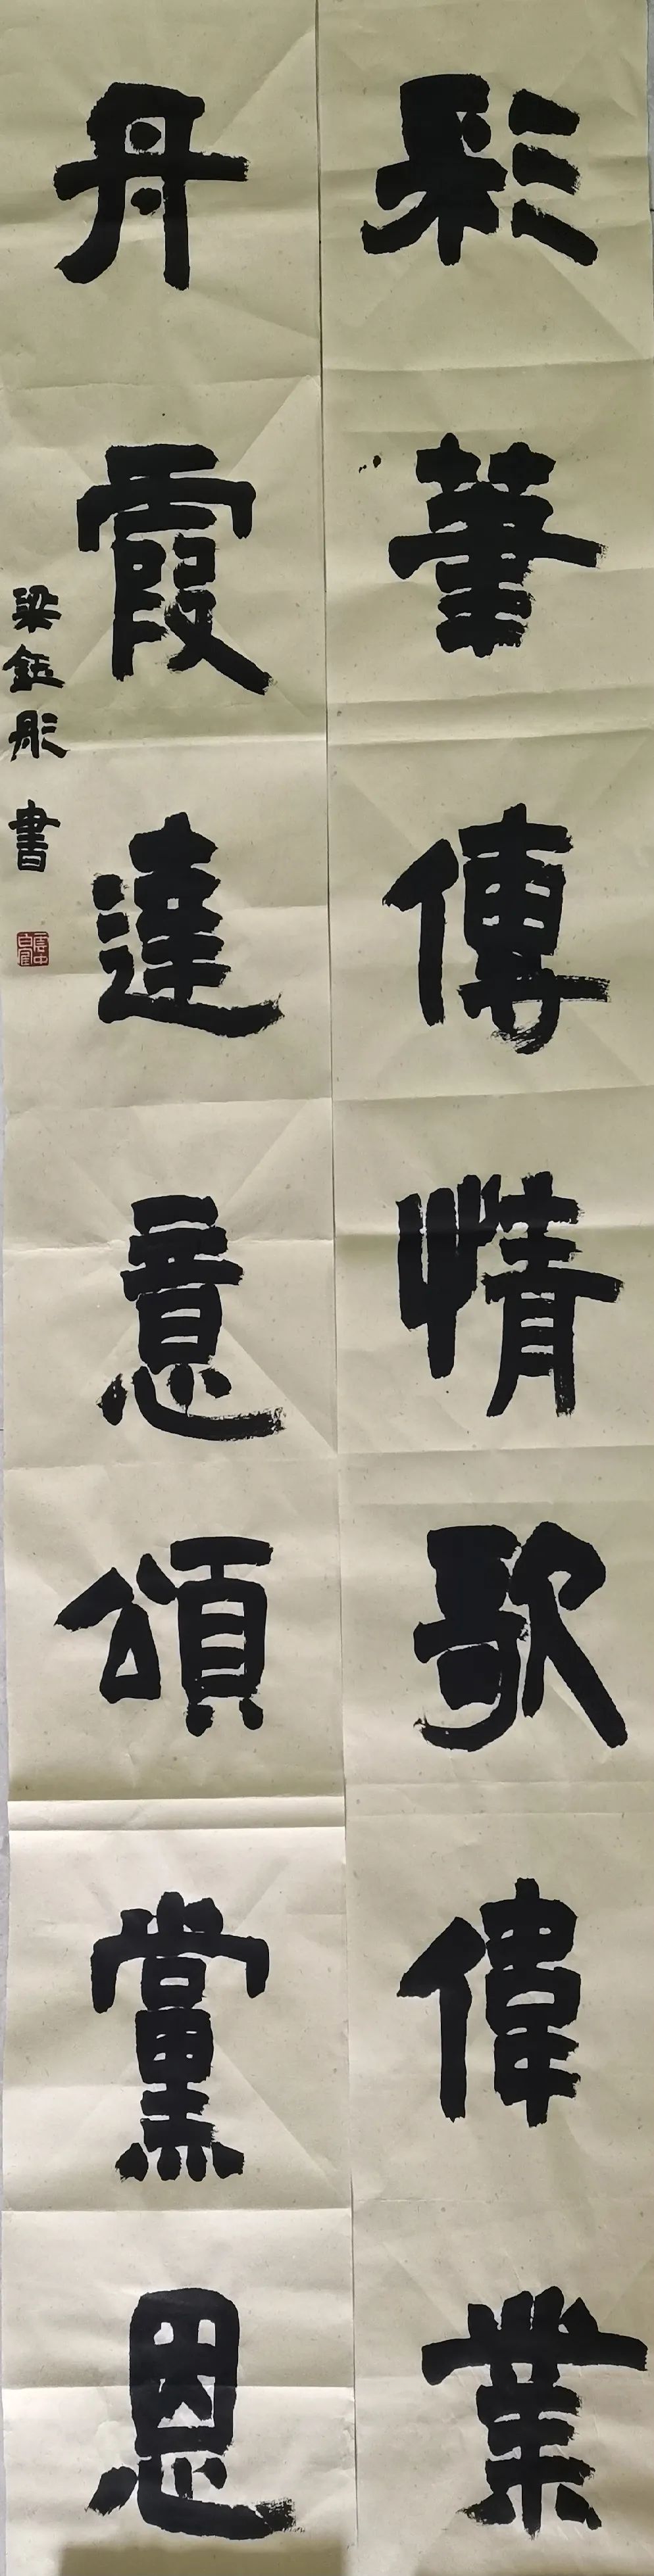 彩筆傳情歌偉業
丹霞達意頌黨恩
梁鈺彤 書